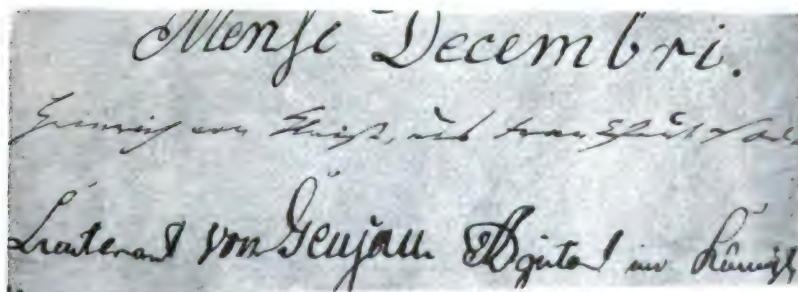 Mense Decembri.
Heinrich von Kleist, aus Frankfurt
Lieutenant von Adjutant im Königl